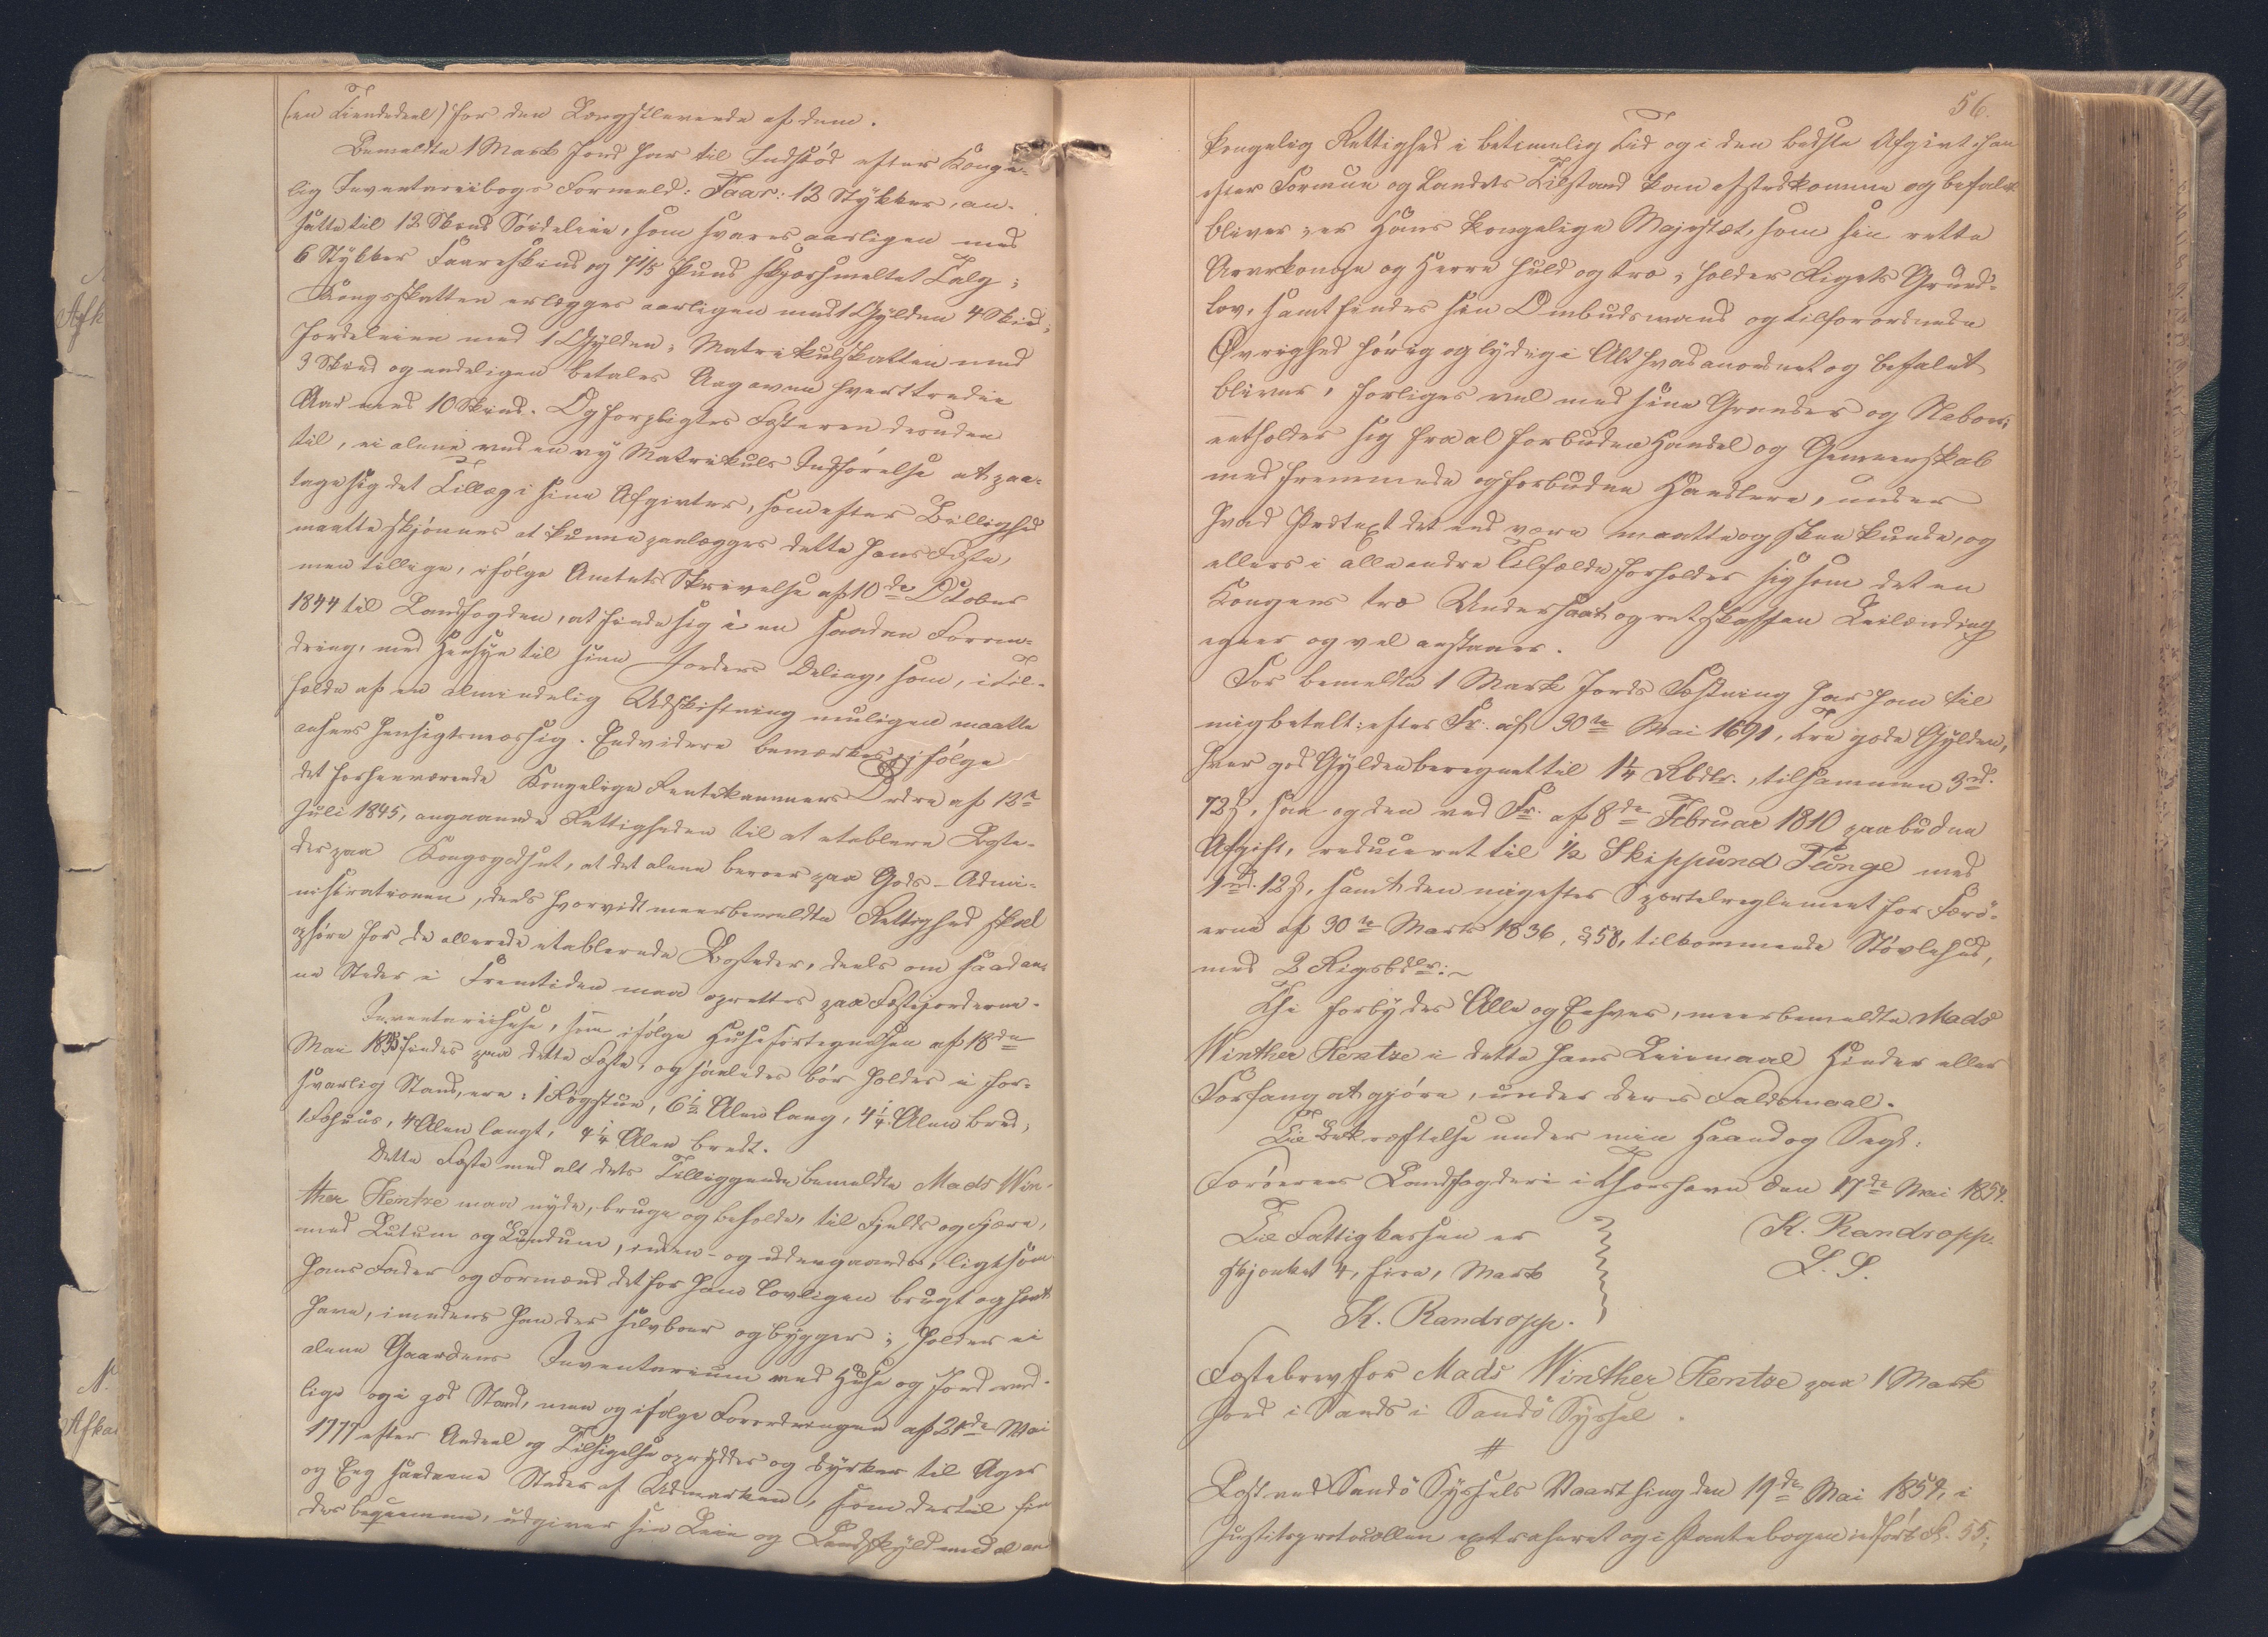 (en Tiendedeel) for den Længstlevende af dem.
Bemeldte 1 Mark Jord har til Indstød efter Konge-
lig Inventariibogs Formeld: Faar: 12 Stykker, an-
satte til 12 Skind Søideleie, som svares aarligen med
6 Stykker Faareskind og 7 1/5 Pund skjærsmeltet Talg;
Kongsskatten erlægges aarligen med 1 Gylden 4 Skind;
Jordeleien med 1 Gylden; Matrikulskatten med
3 Skind og endeligen betales Aagaven hvert tredie
Aar med 10 Skind. Og forpligtes Fæsteren desuden
til, ei alene ved en ny Matrikuls Indførelse at paa-
tage sig det Tillæg i sine Afgivter, som efter Billighed
maatte skjønnes at kunne paalægges dette hans Fæste,
men tillige, ifølge Amtets Skrivelse af 10de October
1844 til Landfogden, at finde sig i en saadan Foran-
dring, med Hensyn til sine Jorders Deling, som, i Til-
fælde af en almindelig Udskiftning muligen maatte
ansees hensigtsmæssig. Endvidere bemærkes, ifølge
det forhenværende Kongelige Rentekammers Ordre af 12te
Juli 1845, angaaende Rettigheden til at etablere Bøste-
der paa Kongsgodset, at det alene beroer paa Gods-Admi-
nistrationen, deels hvorvidt meerbemeldte Rettighed skal
ophøre for de allerede etablerede Bosteder, deels om saadan-
ne Steder i Fremtiden maa oprettes paa Fæstejorderne.
Inventariihuse, som ifølge Huusfortegnelsen af 18de
Mai 1835 findes paa dette Fæste, og saaledes bør holdes i for-
svarlig Stand, ere: 1 Røgstue, 6 1/2 Alen lang, 4 1/4 Alen bred,
1 Fæhuus, 4 Alen langt, 4 1/4 Alen bredt.
Dette Fæste med alt dets Tilliggende bemeldte Mads Win-
ther Hentze maa nyde, bruge og beholde, til Fjelds og Fjære,
med Lutum og Lundum, inden- og udengaards, ligesom
hans Fader og Formænd det før ham lovligen brugt og havt
have, imedens han der selv boer og bygger; holder ei
alene Gaardens Inventarium ved Huse og Jord ved-
lige og i god Stand, men og ifølge Forordningen af 21de Mai
1777 efter Andeel og Tilsigelse oprydder og dyrker til Ager
og Eng saadanne Steder af Udmarken, som dertil fin-
des beqvemme, udgiver sin Leie og Landskyld med al an-
56.
kongelig Rettighed i betimelig Tid og i den bedste Afgivt han
efter Formue og Landets Tilstand kan afstedkomme og befalet
bliver; er Hans Kongelige Majestæt, som sin rette
Arvekonge og Herre huld og tro; holder Rigets Grund-
lov, samt findes sin Ombudsmand og tilforordnede
Øvrighed hørig og lydig i Alt hvad anordnet og befalet
bliver, forliges vel med sine Grander og Naboer;
entholder sig fra al forbuden Handel og Gemeenskab
med fremmede og forbudne Handlere, under
hvad Prætext det end være maatte og skee kunde, og
ellers i alle andre Tilfælde forholder sig som det en
Kongens tro Undersaat og retskaffen Leilænding
egner og vel anstaaer.
For bemeldte 1 Mark Jords Fæstning har han til
mig betalt: efter Fr. af 30te Mai 1691, tre gode Gylden,
hver god Gylden beregnet til 1 1/4 Rbdlr., tilsammen 3rd.
72ß, saa og den ved Fr. af 8de Februar 1810 paabudne
Afgift, reduceret til 1/2 Skippund Tunge med
1rd. 12ß, samt den mig efter Sportelreglement for Færø-
erne af 30te Marts 1836, § 58, tilkommende Støvlehud,
med 2 Rigsbdlr:
Thi forbydes Alle og Enhver, meerbemeldte Mads
Winther Hentze i dette hans Leiemaal Hinder eller
Forfang at gjøre, under deres Faldsmaal.
Til Bekræftelse under min Haand og Segl:
Færøernes Landfogderi i Thorshavn den 17de Mai 1854.
K. Randropp.
L. S.
Til Fattigkassen er
skjænket 4, fire, Mark
K. Randropp.
Fæstebrev for Mads Winther Hentze paa 1 Mark
Jord i Sands i Sandø Syssel.
#
Læst ved Sandø Syssels Vaarthing den 19de Mai 1854, i
Justitsprotocollen extraheret og i Pantebogen indført Fol. 55;